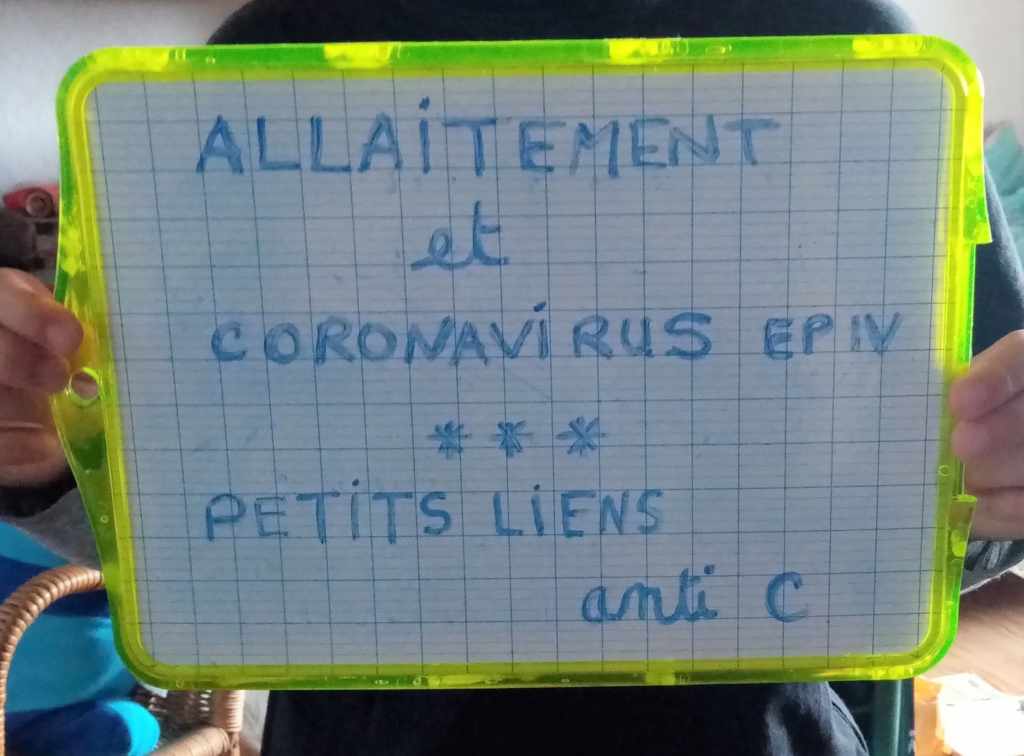 ALLAiTEMENT
et
CORONAVIRUS EP IV
* * *
PETiTS LiENS
anti C